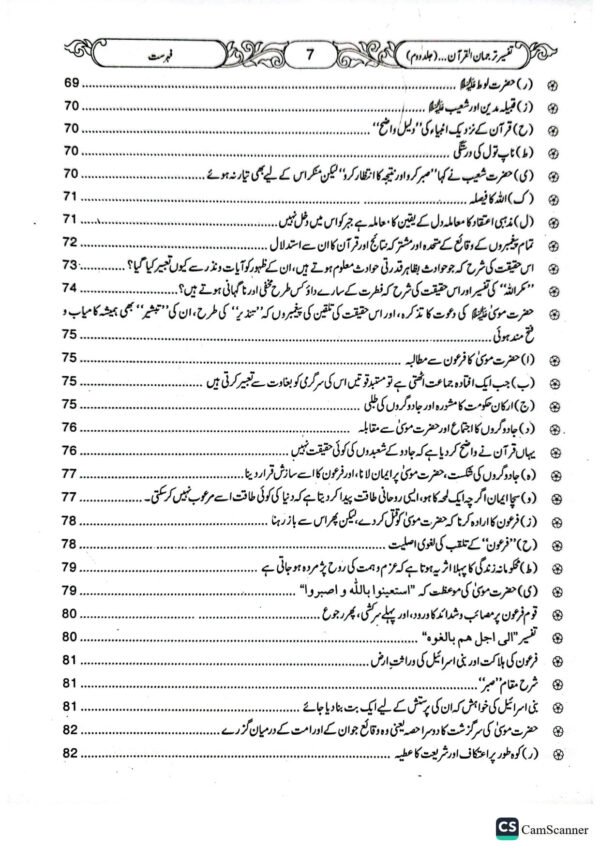 تفسیر ترجمان القرآن...(جلد دوم) 7 فہرست
(ر) حضرت لوط علیہ السلام ........ 69
(ز) قبیلہ مدین اور شعیب علیہ السلام ........ 70
(ح) قرآن کے نزدیک انبیاء کی ''دلیل واضح'' ........ 70
(ط) ناپ تول کی درستگی ........ 70
(ی) حضرت شعیب نے کہا ''صبر کرو اور نتیجہ کا انتظار کرو'' لیکن منکر اس کے لیے بھی تیار نہ ہوئے ........ 70
(ک) اللہ کا فیصلہ ........ 71
(ل) مذہبی اعتقاد کا معاملہ دل کے یقین کا معاملہ ہے جبر کو اس میں دخل نہیں ........ 71
تمام پیغمبروں کے وقائع کے متحدہ اور مشترکہ نتائج اور قرآن کا ان سے استدلال ........ 72
اس حقیقت کی شرح کہ جو حوادث بظاہر قدرتی حوادث معلوم ہوتے ہیں، ان کے ظہور کو آیات و نذر سے کیوں تعبیر کیا گیا؟ ........ 73
''مکر اللہ'' کی تفسیر اور اس حقیقت کی شرح کہ فطرت کے سارے داؤ کس طرح مخفی اور ناگہانی ہوتے ہیں؟ ........ 74
حضرت موسیٰ علیہ السلام کی دعوت کا تذکرہ، اور اس حقیقت کی تلقین کی پیغمبروں کہ ''تنذیر'' کی طرح، ان کی ''تبشیر'' بھی ہمیشہ کامیاب و
فتح مند ہوئی ........ 75
(ا) حضرت موسیٰ کا فرعون سے مطالبہ ........ 75
(ب) جب ایک افتادہ جماعت اٹھتی ہے تو مستبد قوتیں اس کی سرگرمی کو بغاوت سے تعبیر کرتی ہیں ........ 75
(ج) ارکان حکومت کا مشورہ اور جادوگروں کی طلبی ........ 75
(د) جادوگروں کا اجتماع اور حضرت موسیٰ سے مقابلہ ........ 76
یہاں قرآن نے واضح کر دیا ہے کہ جادو کے شعبدوں کی کوئی حقیقت نہیں ........ 76
(ہ) جادوگروں کی شکست، حضرت موسیٰ پر ایمان لانا، اور فرعون کا اسے سازش قرار دینا ........ 77
(و) سچا ایمان اگرچہ ایک لمحہ کا ہو، ایسی روحانی طاقت پیدا کر دیتا ہے کہ دنیا کی کوئی طاقت اسے مرعوب نہیں کر سکتی۔ ........ 77
(ز) فرعون کا ارادہ کرنا کہ حضرت موسیٰ کو قتل کر دے، لیکن پھر اس سے باز رہنا ........ 78
(ح) ''فرعون'' کے تلقب کی لغوی اصلیت ........ 78
(ط) محکومانہ زندگی کا پہلا اثر یہ ہوتا ہے کہ عزم و ہمت کی روح پژمردہ ہو جاتی ہے ........ 79
(ی) حضرت موسیٰ کی موعظت کہ "استعینوا باللّٰہ و اصبروا" ........ 79
قوم فرعون پر مصائب و شدائد کا ورود، اور پہلے سرکشی، پھر رجوع ........ 80
تفسیر "الی اجل ھم بالغوہ" ........ 80
فرعون کی ہلاکت اور بنی اسرائیل کی وراثتِ ارض ........ 81
شرح مقام ''صبر'' ........ 81
بنی اسرائیل کی خواہش کہ ان کی پرستش کے لیے ایک بت بنا دیا جائے ........ 81
حضرت موسیٰ کی سرگزشت کا دوسرا حصہ یعنی وہ وقائع جو ان کے اور امت کے درمیان گزرے ........ 82
(ر) کوہ طور پر اعتکاف اور شریعت کا عطیہ ........ 82
CS CamScanner